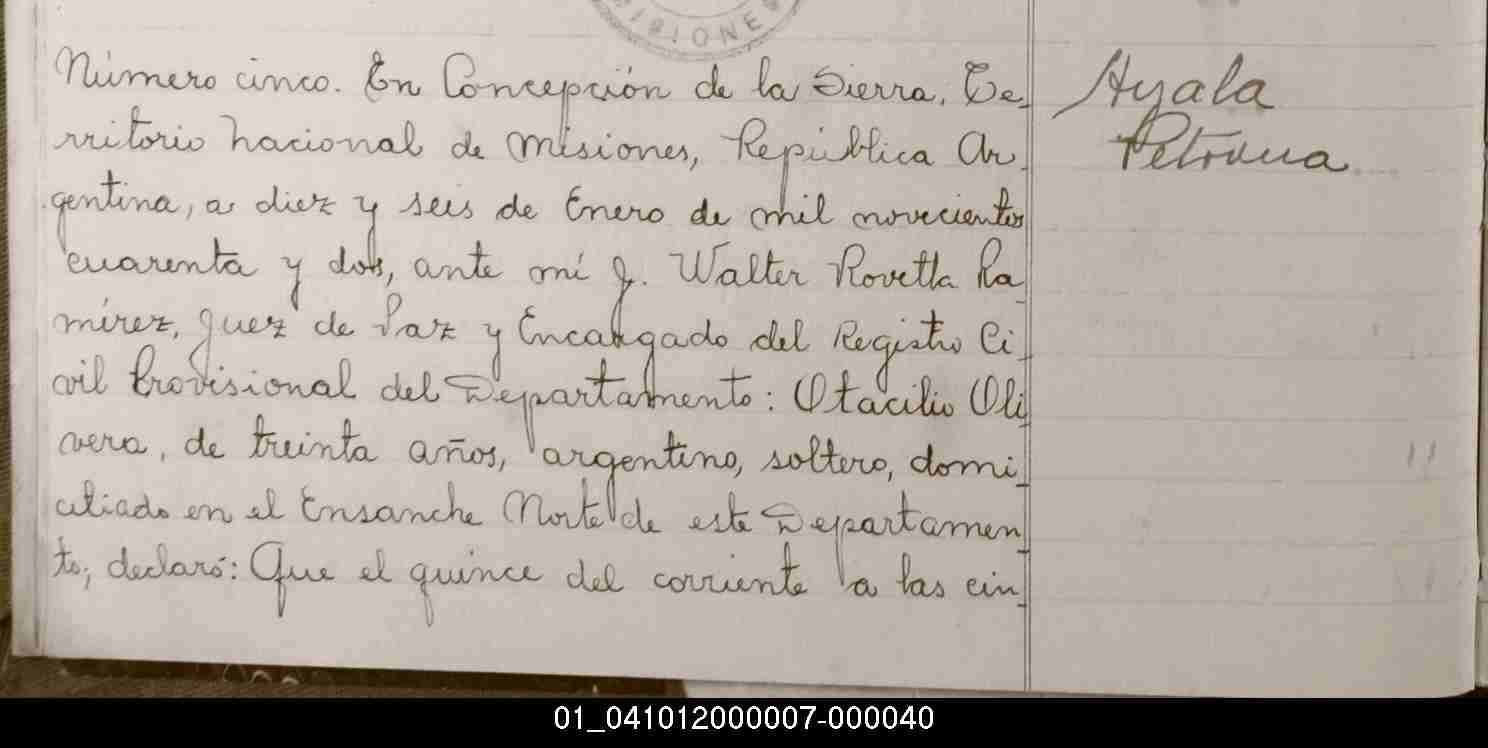 MISIONES
Número cinco. En Concepción de la Sierra, Te-
rritorio nacional de Misiones, República Ar-
gentina, a diez y seis de Enero de mil novecientos
cuarenta y dos, ante mí J. Walter Rovetta Ra-
mírez, Juez de Paz y Encargado del Registro Ci-
vil Provisional del Departamento: Otacilio Oli-
vera, de treinta años, argentino, soltero, domi-
ciliado en el Ensanche Norte de este Departamen-
to, declaró: Que el quince del corriente a las cin-
Ayala
Petrona
01_041012000007-000040